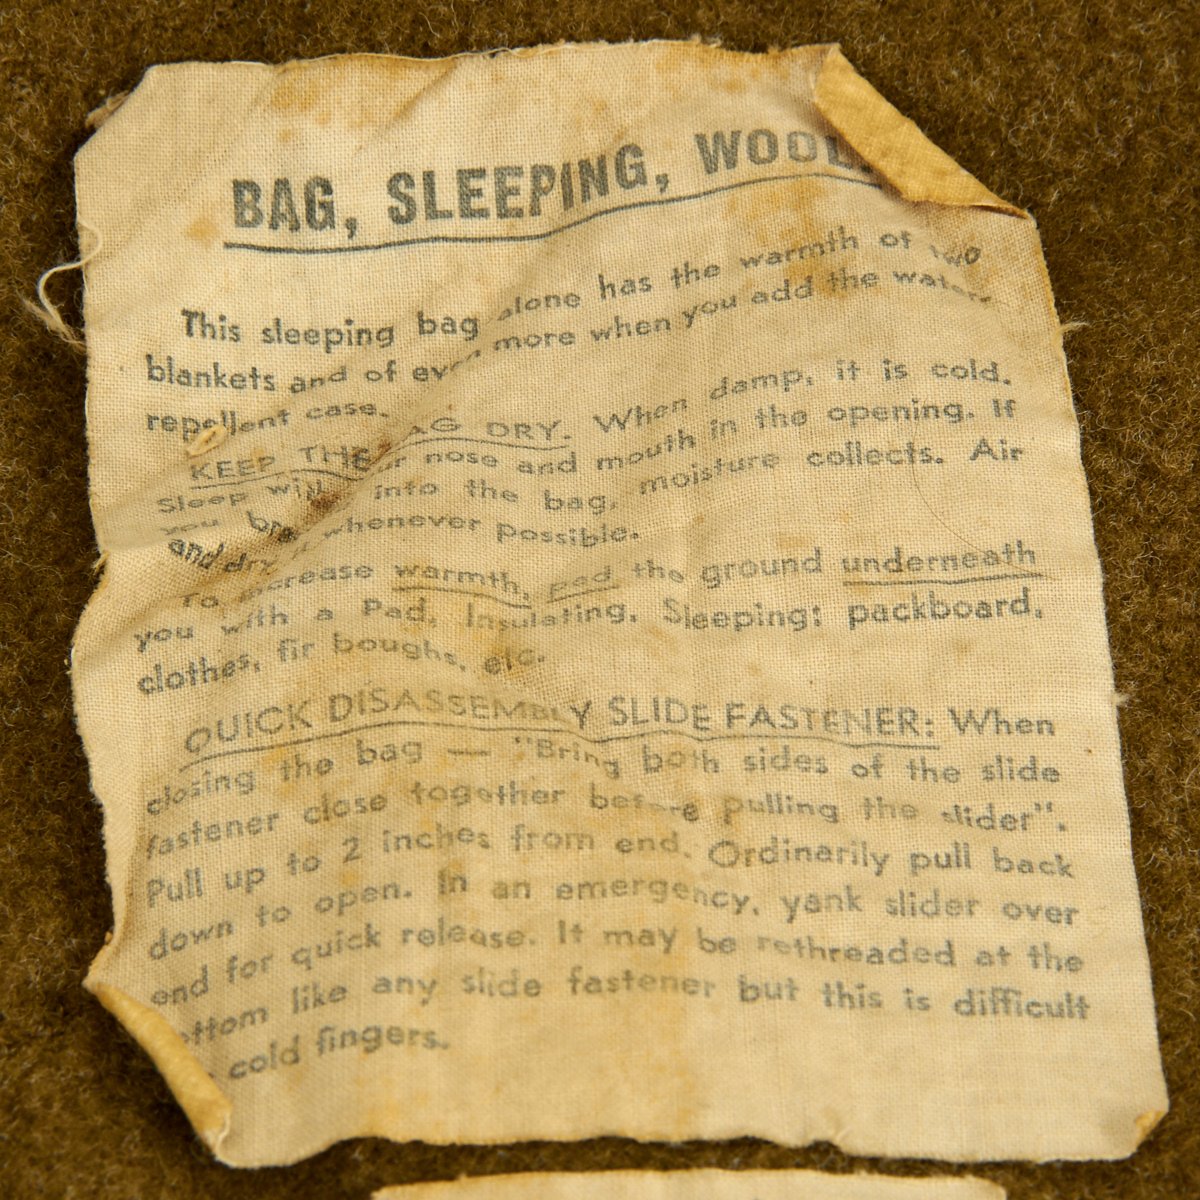 BAG, SLEEPING, WOOL
This sleeping bag alone has the warmth of two
blankets and of even more when you add the water
repellent case.
KEEP THE BAG DRY. When damp, it is cold.
Sleep with your nose and mouth in the opening. If
you breathe into the bag, moisture collects. Air
and dry it whenever possible.
To increase warmth, pad the ground underneath
you with a Pad, Insulating, Sleeping; packboard,
clothes, fir boughs, etc.
QUICK DISASSEMBLY SLIDE FASTENER: When
closing the bag — "Bring both sides of the slide
fastener close together before pulling the slider".
Pull up to 2 inches from end. Ordinarily pull back
down to open. In an emergency, yank slider over
end for quick release. It may be rethreaded at the
bottom like any slide fastener but this is difficult
cold fingers.